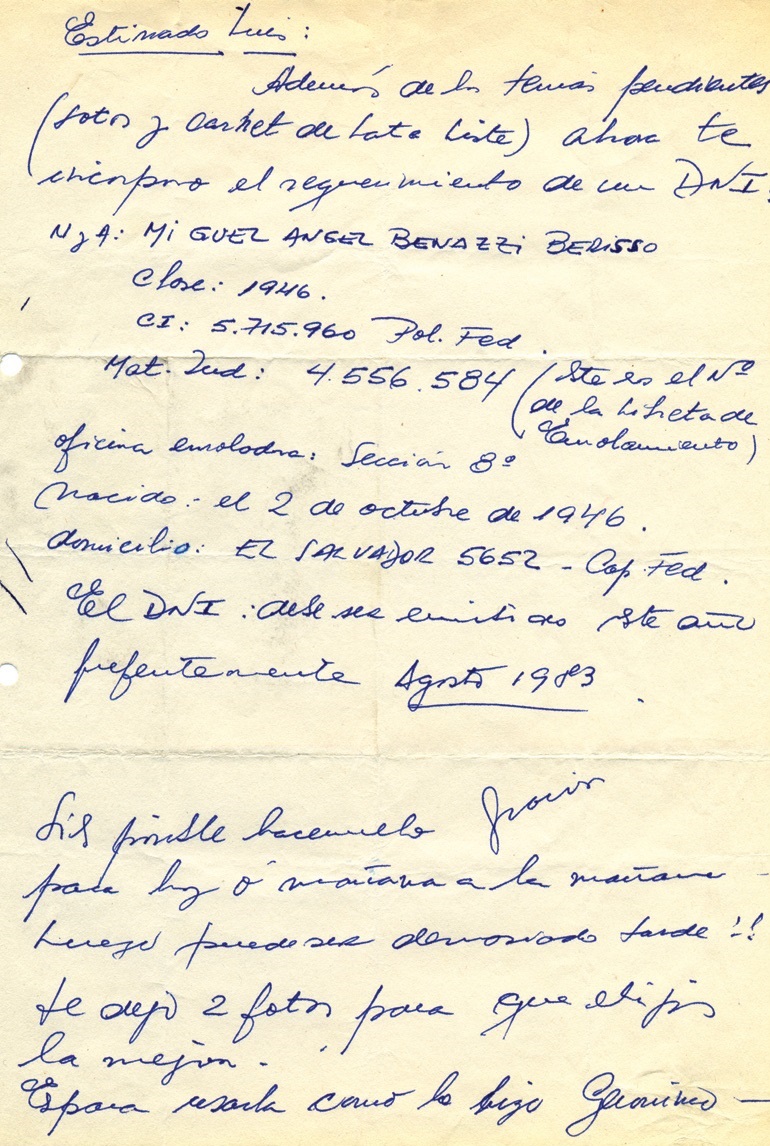 Estimado Luis:
Además de los temas pendientes
(fotos y carnet de Lata Liste) ahora te
incorporo el requerimiento de un DNI:
N y A: MIGUEL ANGEL BENAZZI BERISSO
Clase: 1946.
CI: 5.715.960 Pol. Fed.
Mat. Ind: 4.556.584 (Este es el Nº
de la Libreta de
Enrolamiento)
oficina enroladora: Sección 8º
Nacido: el 2 de octubre de 1946.
domicilio: EL SALVADOR 5652 - Cap. Fed.
El DNI: debe ser emitido este año
preferentemente Agosto 1983.
Si es posible hacemelo Gracias
para hoy ó mañana a la mañana -
Luego puede ser demasiado tarde!!
te dejo 2 fotos para que elijas
la mejor.
Es para usarla como lo hizo Geronimo -